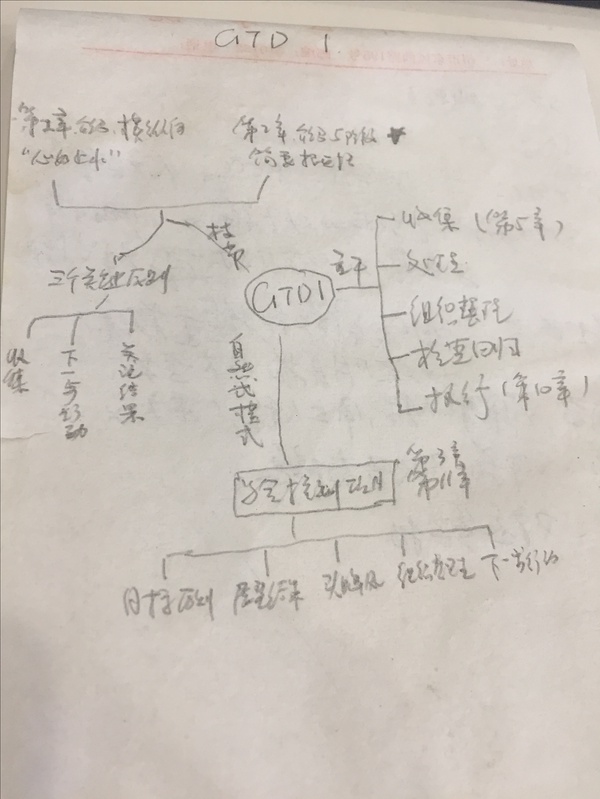 GTD 1
第1章.介绍.横纵向
"心如止水"
第2章.介绍5阶段
简要描述
三个关键原则
技
收集
下一步行动
关注结果
GTD1
主干
收集(第5章)
处理
组织整理
检查回顾
执行(第10章)
自然式模式
第3章
第11章
目标原则
展望结果
头脑风
组织整理
下一步行动